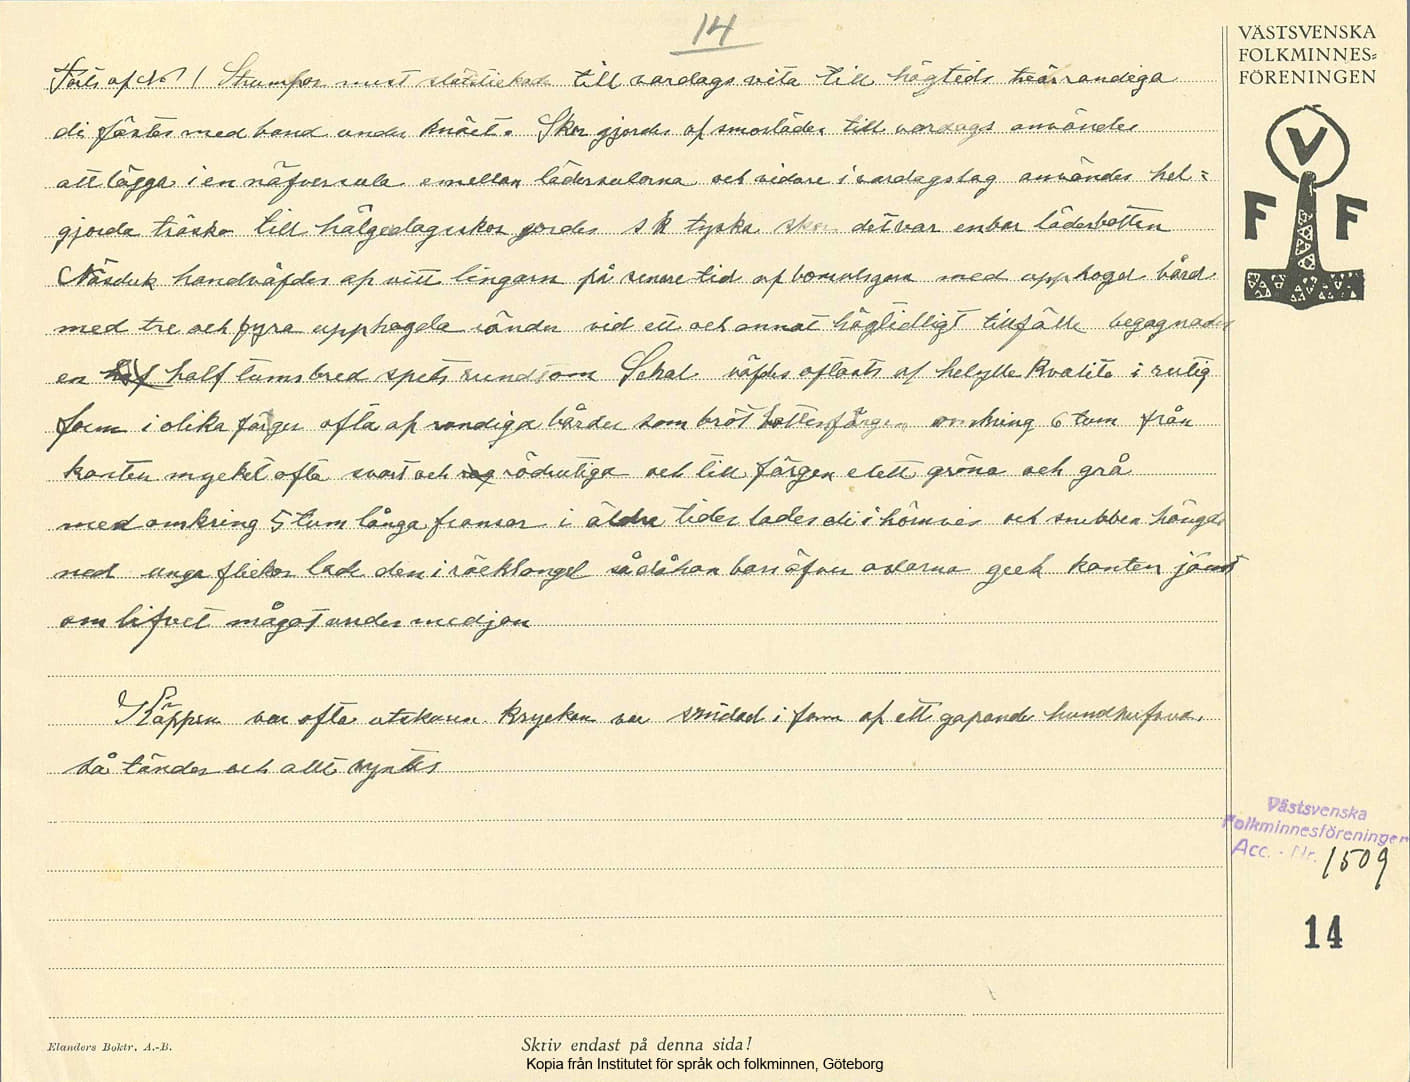 14
VÄSTSVENSKA
FOLKMINNES=
FÖRENINGEN
V
F F
Forts af No 1 Strumpor mest slätstickade till vardags vita till högtids tvärrandiga
di fästes med band under knäet. Skor gjordes af smorläder till vardags användes
att lägga i en näfversula emellan lädersulorna och vidare i vardagslag användes hel=
gjorda träsko till hälgedagsskor gordes s k tyska skor det var enbar läderbotten
Näsduk handväfdes af vitt lingarn på senare tid af bomulsgarn med upphögd bård
med tre och fyra upphögda ränder vid ett och annat högtidligt tillfälle begagnades
en half tums bred spets rundt om Schal väfdes oftast af helylle kvalite i rutig
form i olika färger ofta af randiga bårder som bröt bottenfärgen omkring 6 tum från
kanten mycket ofta svart och rödrutiga och till färgen elett gröna och grå
med omkring 5 tum långa fransar i äldre tider lades di i hörnvis och snibben hängde
ned unga flickor lade den i räcktangel så dåhon bars öfver axlarna geck kanten jämt
om lifvet något under medjan
Käppen var ofta utskuren kryckan var smidad i form af ett gapande hundhufvud,
så tänder och allt syntes
Västsvenska
Folkminnesföreningen
Acc. - Nr. 1509
14
Elanders Boktr. A.-B.
Skriv endast på denna sida!
Kopia från Institutet för språk och folkminnen, Göteborg